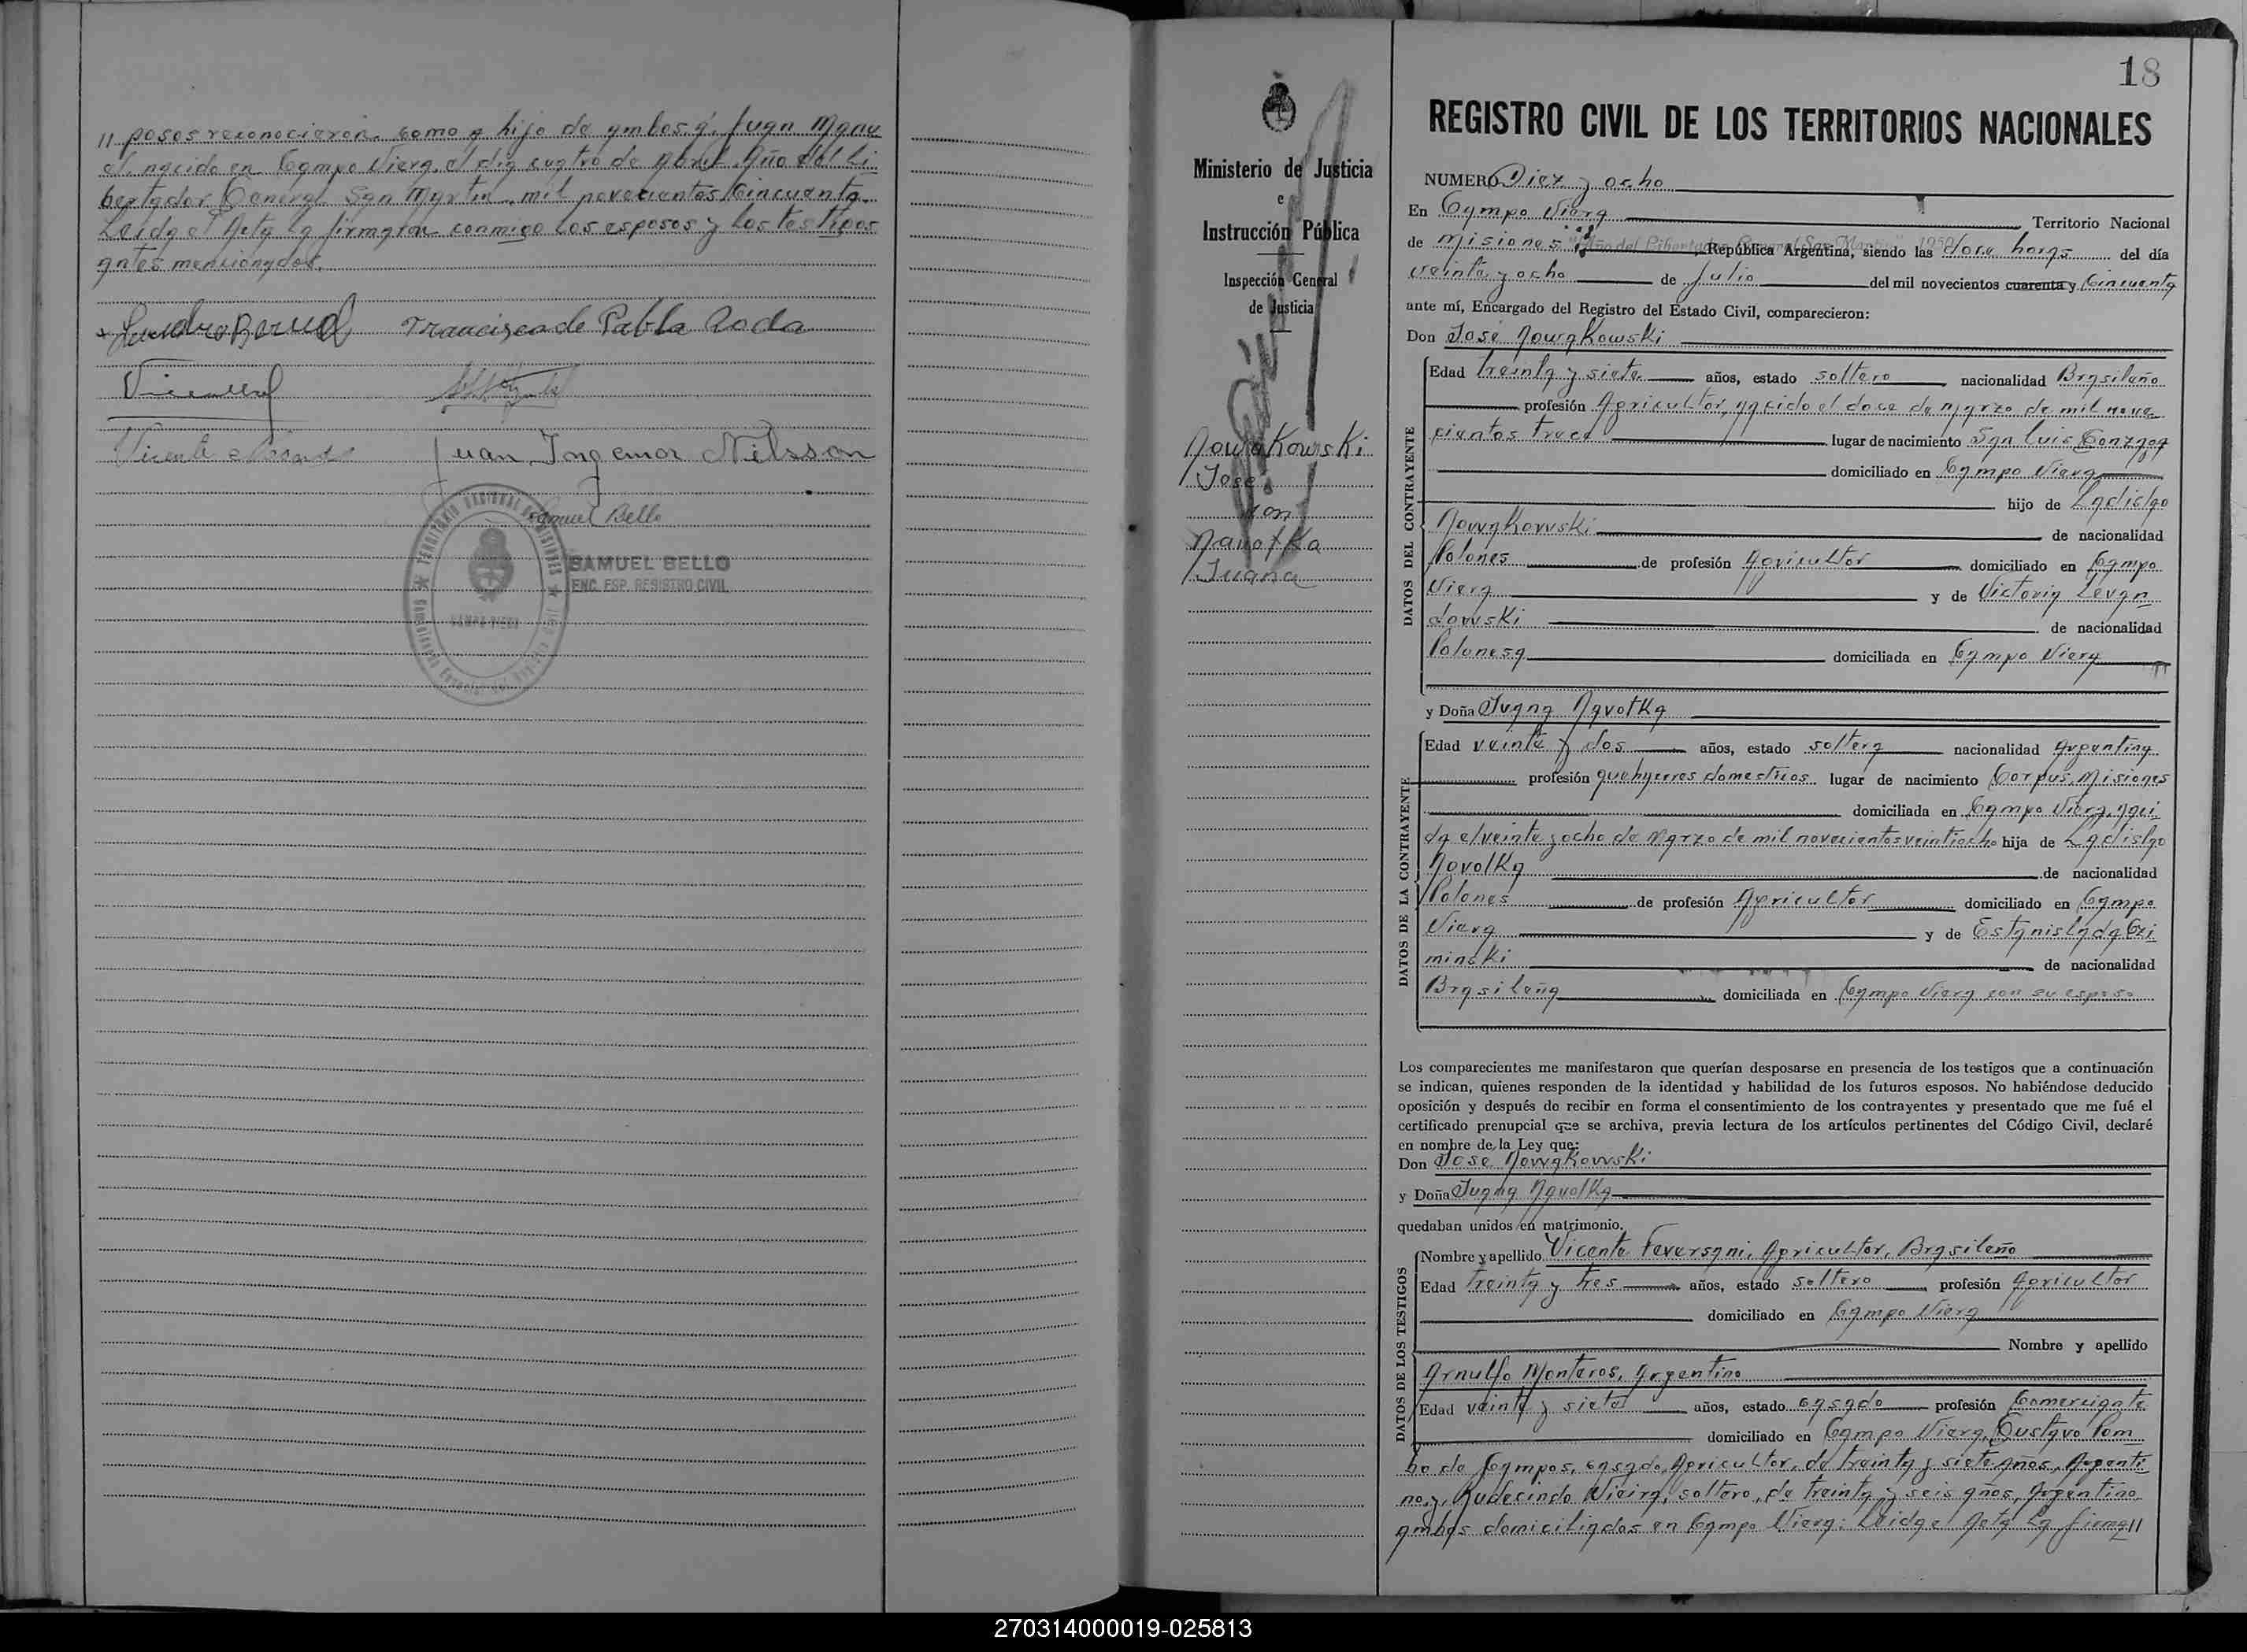 // posos reconocieron como a hijo de ambos á Juan Manu
el nacido en Campo Viera, el dia cuatro de Abril Año del Li
bertador General San Martin, mil novecientos cincuenta.
Leida el Acta la firmaron conmigo los esposos y los testigos
antes mencionados.
Francisca de Pabla Roda
Juan Ingemar Nilsson
Samuel Bello
SAMUEL BELLO
ENC. ESP. REGISTRO CIVIL
CAMPO VIERA
Ministerio de Justicia
e
Instrucción Pública
Inspección General
de Justicia
Nowakowski
José
con
Navotka
Juana
18
REGISTRO CIVIL DE LOS TERRITORIOS NACIONALES
NUMERO Diez y ocho
En Campo Viera Territorio Nacional
de Misiones "Año del Libertador General San Martin" 1950 República Argentina, siendo las doce horas del día
veinte y ocho de Julio del mil novecientos cuarenta y Cincuenta
ante mí, Encargado del Registro del Estado Civil, comparecieron:
Don José Nowakowski
DATOS DEL CONTRAYENTE
Edad treinta y siete años, estado soltero nacionalidad Brasileño
profesión Agricultor, nacido el doce de marzo de mil nove
cientos trece lugar de nacimiento San Luis Gonzaga
domiciliado en Campo Viera
hijo de Ladislao
Nowakowski de nacionalidad
Polones de profesión Agricultor domiciliado en Campo
Viera y de Victoria Levan
dowski de nacionalidad
Polonesa domiciliada en Campo Viera
y Doña Juana Navotka
DATOS DE LA CONTRAYENTE
Edad veinte y dos años, estado soltera nacionalidad Argentina
profesión quehaceres domesticos lugar de nacimiento Corpus, Misiones
domiciliada en Campo Viera, naci
da el veinte y ocho de Marzo de mil novecientos veintiocho hija de Ladislao
Navotka de nacionalidad
Polones de profesión Agricultor domiciliado en Campo
Viera y de Estanislada Czi
minski de nacionalidad
Brasileña domiciliada en Campo Viera con su esposo
Los comparecientes me manifestaron que querían desposarse en presencia de los testigos que a continuación
se indican, quienes responden de la identidad y habilidad de los futuros esposos. No habiéndose deducido
oposición y después do recibir en forma el consentimiento de los contrayentes y presentado que me fué el
certificado prenupcial que se archiva, previa lectura de los artículos pertinentes del Código Civil, declaré
en nombre de la Ley que:
Don José Nowakowski
y Doña Juana Navotka
quedaban unidos en matrimonio.
DATOS DE LOS TESTIGOS
Nombre y apellido Vicente Feversani, Agricultor, Brasileño
Edad treinta y tres años, estado soltero profesión Agricultor
domiciliado en Campo Viera
Nombre y apellido
Arnulfo Monteros, Argentino
Edad veinte y siete años, estado casado profesión Comerciante
domiciliado en Campo Viera, Gustavo Pom
bo de Campos, casado, Agricultor, de treinta y siete años, Argenti
no, y, Rudecindo Vieira, soltero, de treinta y seis años, Argentino
ambos domiciliados en Campo Viera: Leida el Acta la firma//
270314000019-025813